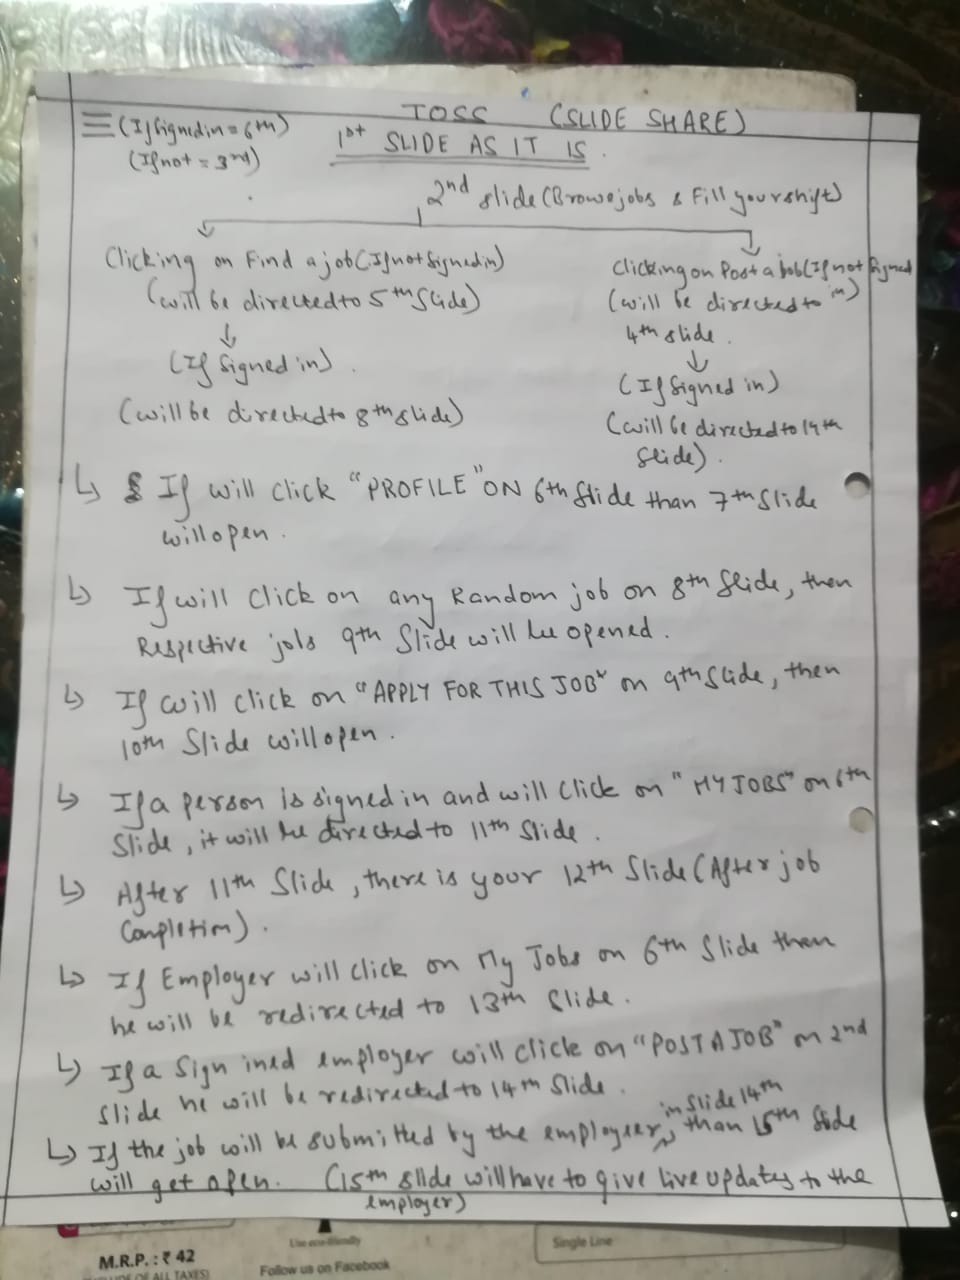 TOSS (SLIDE SHARE)
☰ (If Signed in = 6th)
(If not = 3rd)
1st SLIDE AS IT IS.
2nd slide (Browse jobs & Fill your shift)
Clicking on Find a job (If not Signed in)
(will be directed to 5th Slide)
↓
(If Signed in).
(will be directed to 8th slide)
Clicking on Post a job (If not Signed
in)
(will be directed to
4th slide.
↓
(If Signed in)
(will be directed to 14th
Slide).
↳ If will click "PROFILE" ON 6th Slide than 7th Slide
will open.
↳ If will click on any Random job on 8th Slide, then
Respective jobs 9th Slide will be opened.
↳ If will click on "APPLY FOR THIS JOB" on 9th Slide, then
10th Slide will open.
↳ If a person is signed in and will click on "MY JOBS" on 6th
Slide, it will be directed to 11th Slide.
↳ After 11th Slide, there is your 12th Slide (After job
Completion).
↳ If Employer will click on My Jobs on 6th Slide then
he will be redirected to 13th Slide.
↳ If a Sign ined employer will click on "POST A JOB" on 2nd
Slide he will be redirected to 14th Slide.
in Slide 14th
↳ If the job will be submitted by the employeer, than 15th Slide
will get open. (15th slide will have to give live updates to the
employer)
M.R.P. : ₹ 42
Use eco-friendly
Follow us on Facebook
Single Line